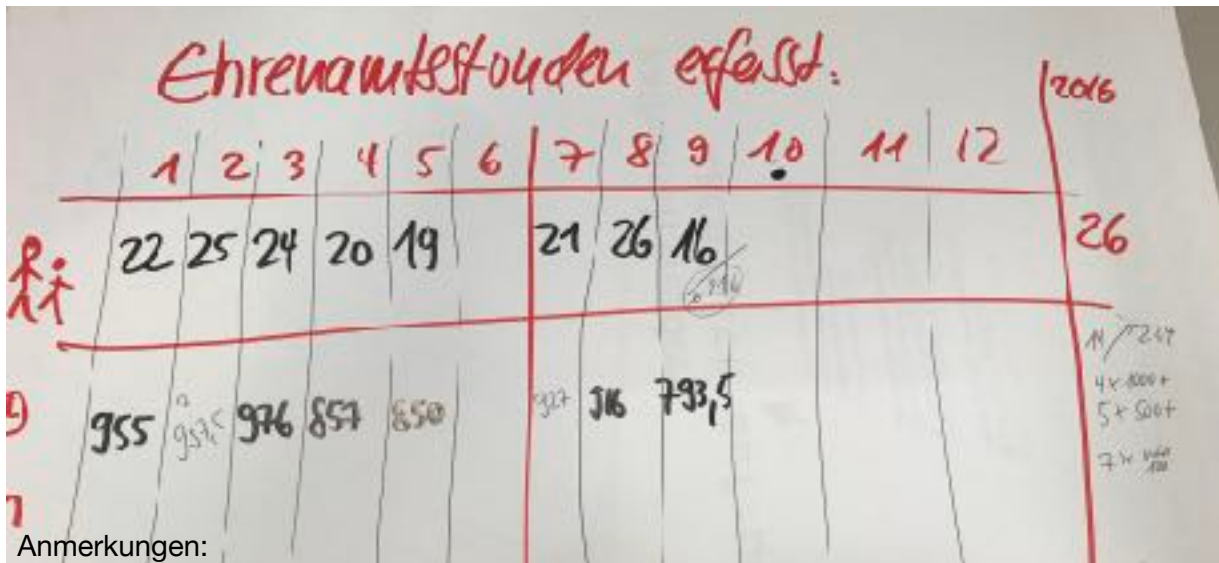 Ehrenamtsstunden erfasst:
2016
1 2 3 4 5 6 7 8 9 10 11 12
22 25 24 20 19 21 26 16 26
955 957,5 976 857 850 927 916 793,5
4 x 1000+
5 x 500+
7 x
Anmerkungen: